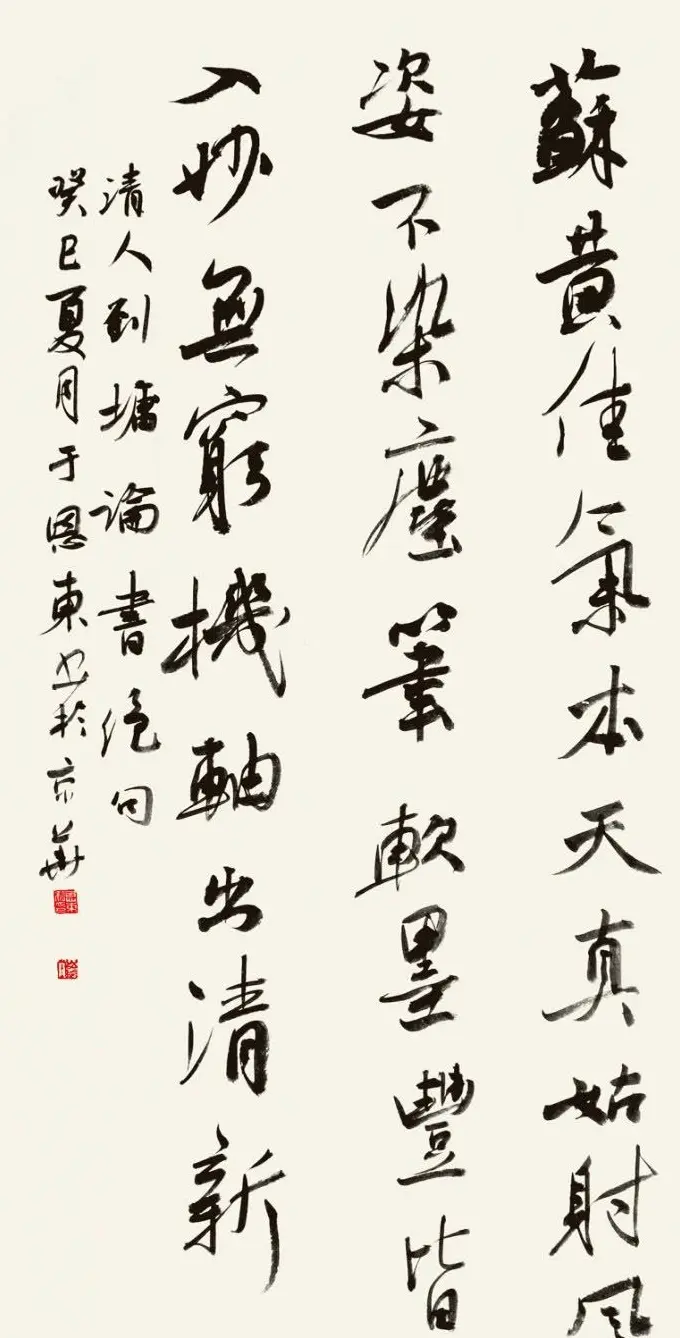 蘇黄佳氣本天真姑射風
姿不染塵筆軟墨豐皆
入妙無窮機軸出清新
清人劉墉論書絕句
癸巳夏月于恩東书於京華